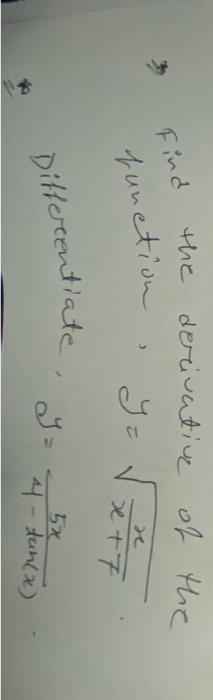 * Find the derivative of the
function, y = √(x/(x+7)).
* Differentiate, y = 5x/(4-tan(x)).